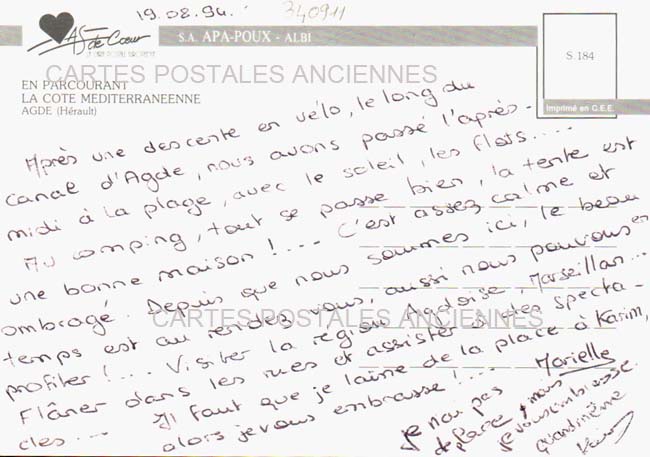 19.08.94.
340911
AS de Cœur
S.A. APA-POUX - ALBI
S. 184
Imprimé en C.E.E.
CARTES POSTALES ANCIENNES
EN PARCOURANT
LA COTE MEDITERRANEENNE
AGDE (Hérault)
Après une descente en vélo, le long du
canal d'Agde, nous avons passé l'après-
midi à la plage, avec le soleil, les flots....
Au camping, tout se passe bien, la tente est
une bonne maison !... C'est assez calme et
ombragé. Depuis que nous sommes ici, le beau
temps est au rendez vous, aussi nous pouvons en
profiter !... Visiter la région Agdoise, Marseillan...
CARTES POSTALES ANCIENNES
Flâner dans les rues et assister à des specta-
cles... Il faut que je laine de la place à Karim,
alors je vous embrasse !... Marielle
je n'ai pas
de place mais
je vous embrasse
quand même